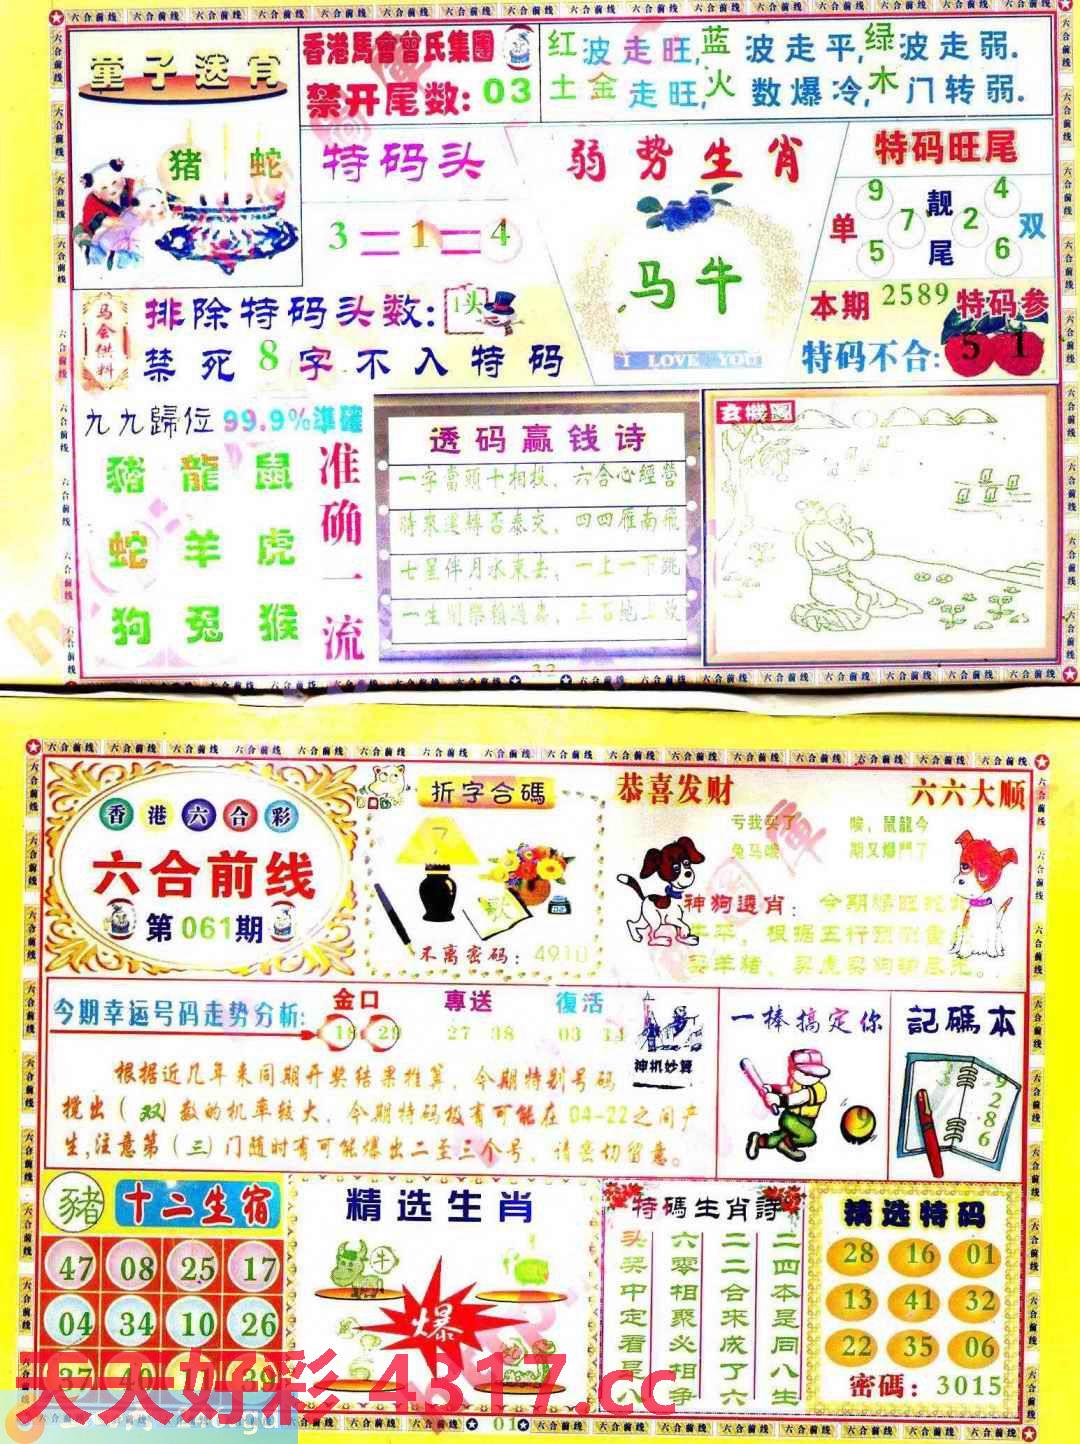 童子送肖
猪 蛇
香港馬會曾氏集團
禁开尾数:03
红波走旺,蓝波走平,绿波走弱.
土金走旺,火数爆冷,木门转弱.
特码头
3=1=4
弱势生肖
马牛
I LOVE YOU
特码旺尾
单 9 7 5
靓尾
4 2 6 双
本期 2589 特码参
特码不合: 5 1
马会供料
排除特码头数: 1头
禁死8字不入特码
九九歸位 99.9%準確
豬 龍 鼠
蛇 羊 虎
狗 兔 猴
准确一流
透码赢钱诗
一字當頭十相投、六合心經營
時來運轉否泰交、四四雁南飛
七星伴月水東去、一上一下跳
玄機圖
香港六合彩
六合前线
第061期
折字合碼
7
歌
不离密码:4910
恭喜发财
六六大顺
亏我买了
兔马哦
唉,鼠龍今
期又爆門了
神狗透肖:
今期幸运号码走势分析:
金口
18 29
專送
27 38
復活
03 14
神机妙算
根据近几年来同期开奖结果推算,今期特别号码
搅出(双)数的机率较大,今期特码极有可能在04-22之间产
生,注意第(三)门随时有可能爆出二至三个号,请密切留意。
一棒搞定你
9
記碼本
9
2
8
6
豬 十二生宿
47 08 25 17
04 34 10 26
37 40 11 39
精选生肖
牛
爆
特碼生肖詩
二四本是同八生
二二合来成了六
六零相聚必相争
头奖中定看是八
精选特码
28 16 01
13 41 32
22 35 06
密碼:3015
天天好彩 4317.cc
01